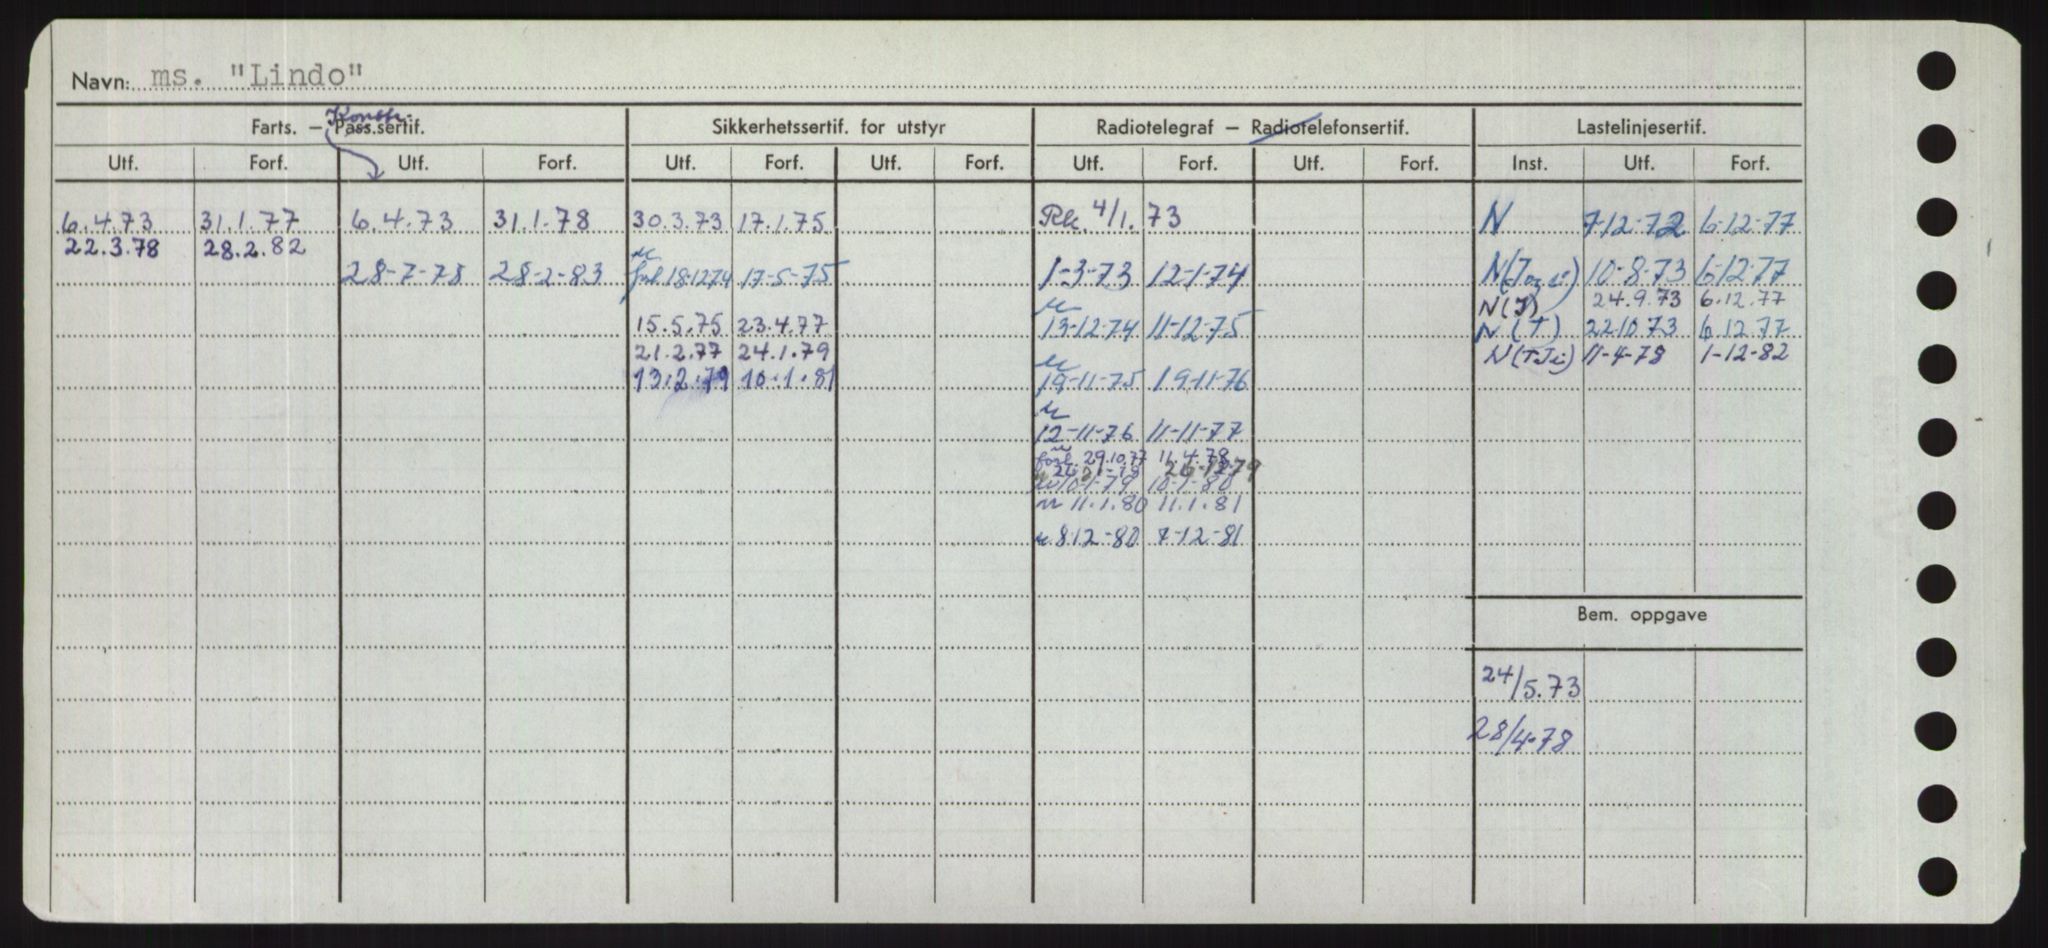 Navn: ms. "Lindo"
Farts. – Pass.sertif. Konstr. Sikkerhetssertif. for utstyr Radiotelegraf – Radiotelefonsertif. Lastelinjesertif.
Utf. Forf. Utf. Forf. Utf. Forf. Utf. Forf. Utf. Forf. Utf. Forf. Inst. Utf. Forf.
6.4.73 31.1.77 6.4.73 31.1.78 30.3.73 17.1.75 Rk. 4/1.73 N 7-12-72 6-12-77
22.3.78 28.2.82
28-7-78 28-2-83 forl 18-12-74 17-5-75 1-3-73 12-1-74 N 10-8-73 6-12-77
N(T) 24.9.73 6.12.77
15.5.75 23.4.77 13-12-74 11-12-75 N(T) 22.10.73 6.12.77
21.2.77 24.1.79 11-4-78 1-12-82
13.2.79 10.1.81 19-11-75 19-11-76
12-11-76 11-11-77
forl. 29.10.77 11.4.78
10-1-79 10-1-80
11.1.80 11.1.81
8-12-80 7-12-81
Bem. oppgave
24/5.73
28/4-78